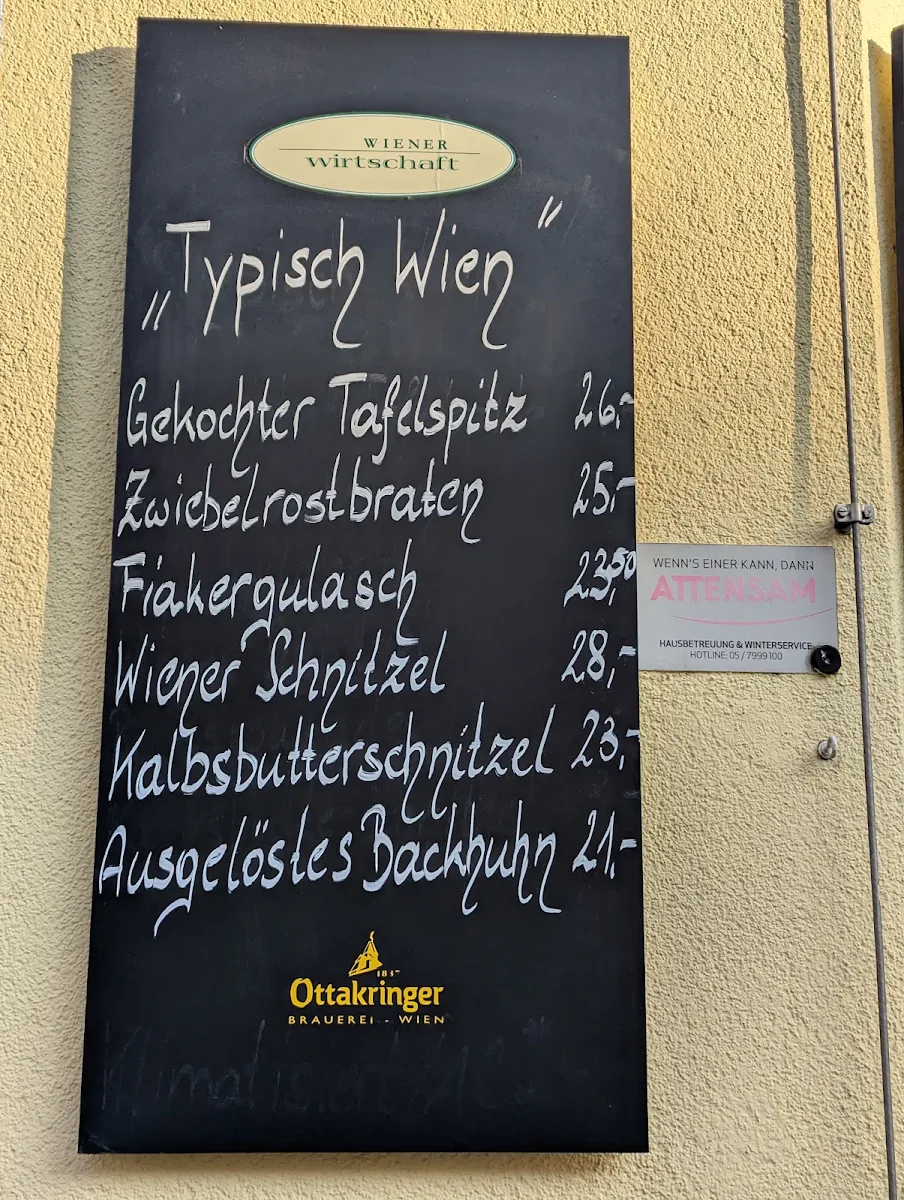 WIENER
wirtschaft
„Typisch Wien"
Gekochter Tafelspitz 26,-
Zwiebelrostbraten 25,-
Fiakergulasch 23,50
Wiener Schnitzel 28,-
Kalbsbutterschnitzel 23,-
Ausgelöstes Backhuhn 21,-
1837
Ottakringer
BRAUEREI - WIEN
WENN'S EINER KANN, DANN
ATTENSAM
HAUSBETREUUNG & WINTERSERVICE
HOTLINE: 05 / 7999 100